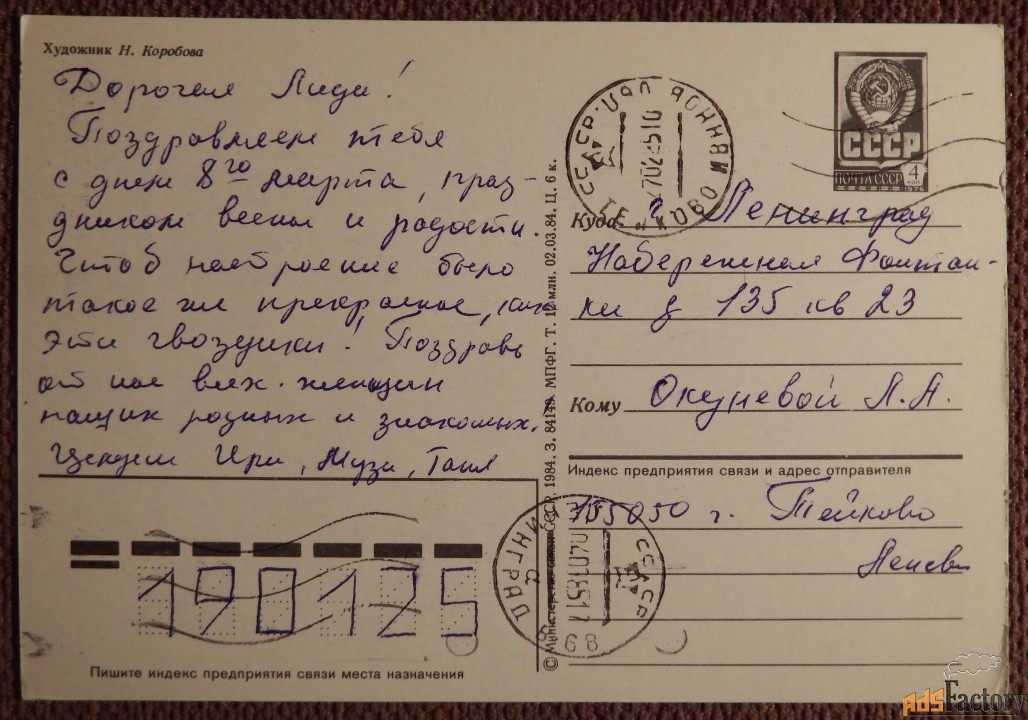 Художник Н. Коробова
Дорогая Лида!
Поздравляем тебя
с днем 8го марта, праз-
дником весны и радости.
Чтоб настроение было
такое же прекрасное, как
эти гвоздики! Поздравь
от нас всех женщин
наших родных и знакомых.
Целуем Ира, Муза, Таня
СССР
ПОЧТА СССР
4
коп
1976
Куда г Ленинград
Набережная Фонтан-
ки д 135 кв 23
Кому Окуневой Л. А.
Индекс предприятия связи и адрес отправителя
155050 г. Тейково
190125
Пишите индекс предприятия связи места назначения
© Министерство связи СССР. 1984. З. 84149. МПФГ. Т. 12 млн. 02.03.84. Ц. 6 к.
СССР
ТЕЙКОВО
СССР
ЛЕНИНГРАД
AdsFactory